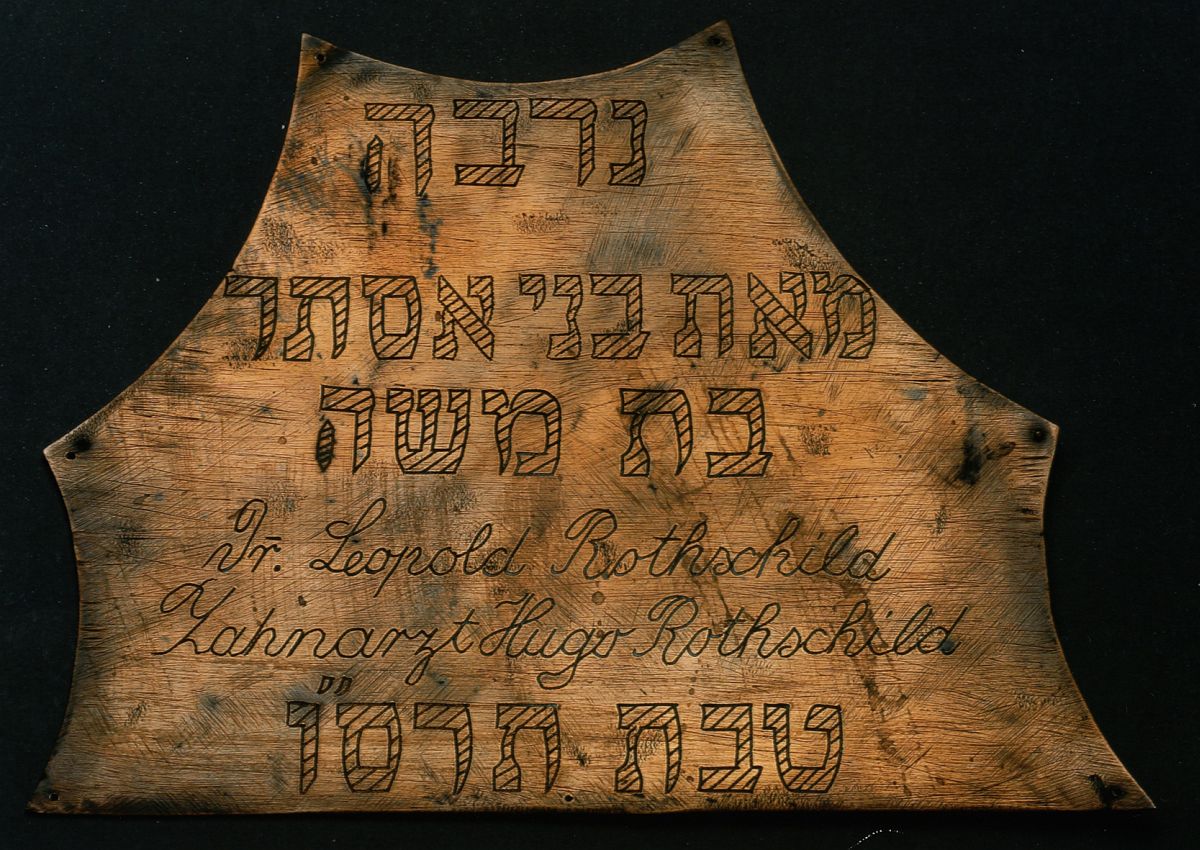 נדבה
מאת בני אסתר
בת משה
Dr. Leopold Rothschild
Zahnarzt Hugo Rothschild
טבת תרס״ו